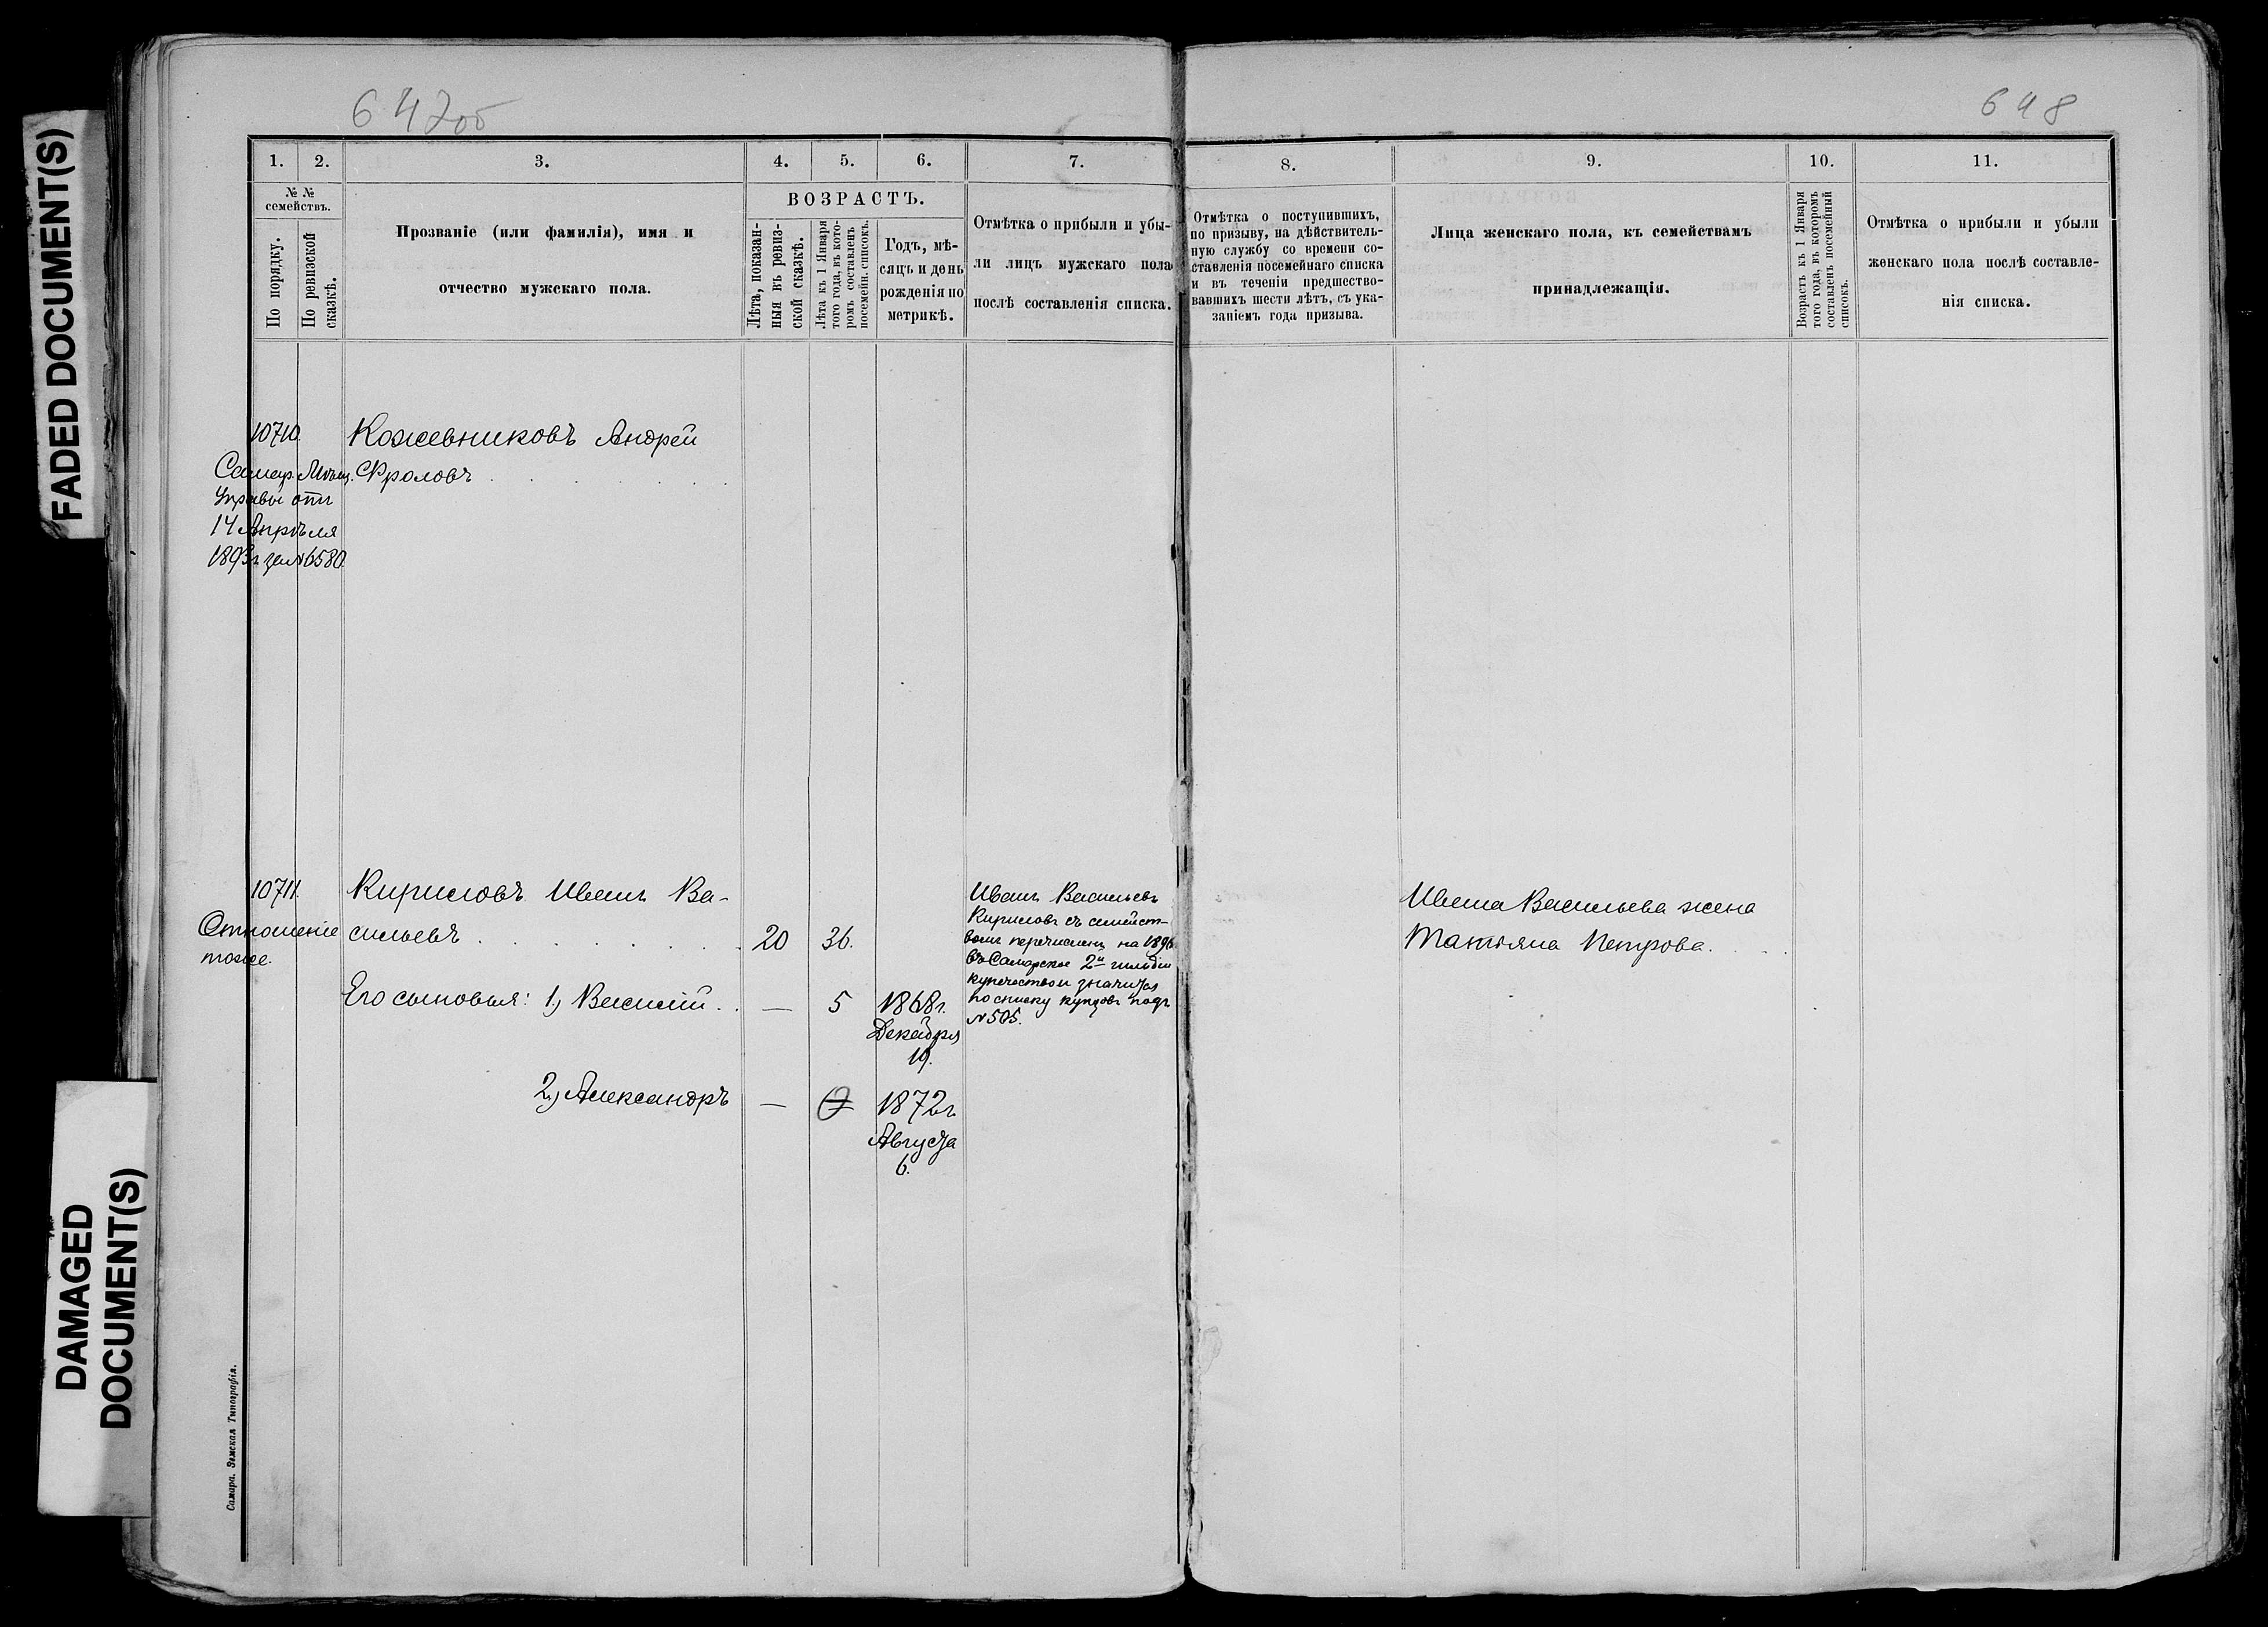 FADED DOCUMENT(S)
DAMAGED
DOCUMENT(S)
647об
648
1.
2.
3.
4.
5.
6.
7.
8.
9.
10.
11.
№ №
семействъ.
По порядку.
По ревизской
сказкѣ.
Прозваніе (или фамилія), имя и
отчество мужскаго пола.
ВОЗРАСТЪ.
Лѣта, показан-
ныя въ ревиз-
ской сказкѣ.
Лѣта къ 1 Января
того года, въ кото-
ромъ составленъ
посемейн. списокъ.
Годъ, мѣ-
сяцъ и день
рожденія по
метрикѣ.
Отмѣтка о прибыли и убы-
ли лицъ мужскаго пола
послѣ составленія списка.
Отмѣтка о поступившихъ,
по призыву, на дѣйствитель-
ную службу со времени со-
ставленія посемейнаго списка
и въ теченіи предшество-
вавшихъ шести лѣтъ, съ ука-
заніемъ года призыва.
Лица женскаго пола, къ семействамъ
принадлежащія.
Возрастъ къ 1 Января
того года, въ которомъ
составленъ посемейный
списокъ.
Отмѣтка о прибыли и убыли
женскаго пола послѣ составле-
нія списка.
10710.
Кожевниковъ Андрей
Фроловъ
Самар. Мѣщ.
Управы отн
14 Апрѣля
1893 г. за №6580.
10711.
Отношеніе
тоже.
Кириловъ Иванъ Ва-
сильевъ
20
36.
Иванъ Васильевъ
Кириловъ съ семейст-
вомъ перечисленъ на 1896
въ Самарское 2й гильдіи
купечество и значится
по списку купцовъ подъ
№505.
Ивана Васильева жена
Татьяна Петрова.
Его сыновья: 1) Василій
—
5
1868 г.
Декабря
19.
2) Александръ
—
0
1872 г.
Августа
6.
Самара. Земская Типографія.